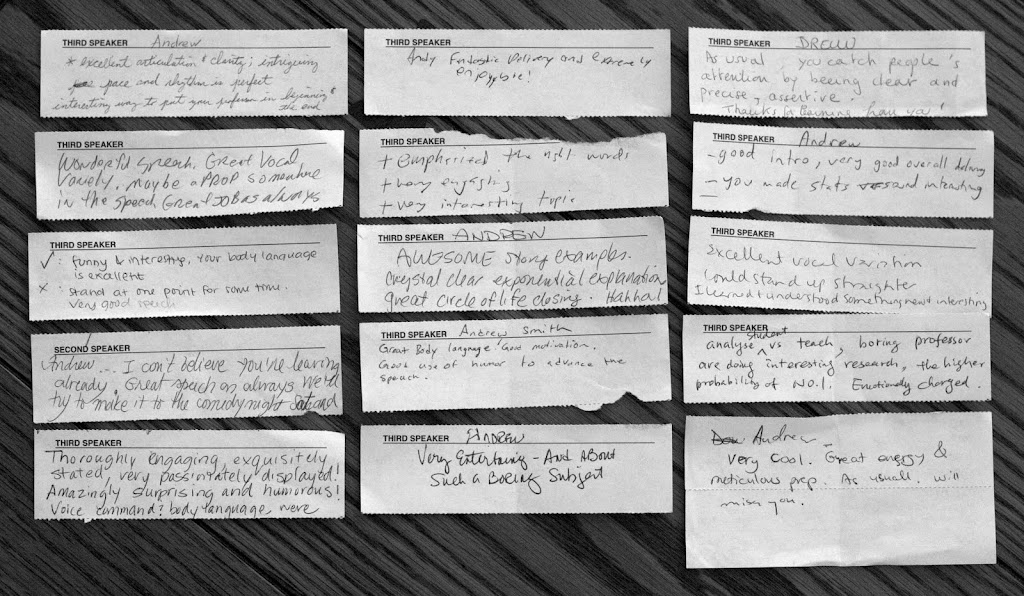 THIRD SPEAKER Andrew
* excellent articulation & clarity; intriguing
pace and rhythm is perfect
interesting way to put your professor in beginning &
the end
THIRD SPEAKER
Wonderful Speach. Great Vocal
Variety, maybe a PROP somewhere
in the speech. Great JOB as always
THIRD SPEAKER
✓: funny & interesting, your body language
is excellent
x: stand at one point for some time.
very good speech
SECOND SPEAKER
Andrew... I can't believe you're leaving
already. Great speech as always We'll
try to make it to the comedy night Sat and
THIRD SPEAKER
Thoroughly engaging, exquisitely
stated, very passintately displayed!
Amazingly surprising and humorous!
Voice command? body language were
THIRD SPEAKER
Andy Fantastic Delivery and extremely
enjoyable!
THIRD SPEAKER
+ emphisited the right words
+ very engaging
+ very interesting topic
THIRD SPEAKER ANDREW
AWESOME story examples.
Crystal clear exponential explanation
great circle of life closing. Hahhal
THIRD SPEAKER Andrew Smith
Great Body language. Good motivation.
Good use of humor to advance the
speach.
THIRD SPEAKER ANDREW
Very Entertaining - And About
Such a Boring Subject
THIRD SPEAKER DREW
As usual you catch people's
attention by beeing clear and
precise, assertive.
Thanks for
THIRD SPEAKER Andrew
- good intro, very good overall delivery
- you made stats sound interesting
THIRD SPEAKER
Excellent vocal variation
Could stand up straighter
I learned & understood something new & intersting
THIRD SPEAKER
student
analyse vs teach, boring professor
are doing interesting research, the higher
probability of NO.1. Emotionally charged.
Andrew -
Very cool. Great energy &
meticulous prep. As usuall. will
miss you.